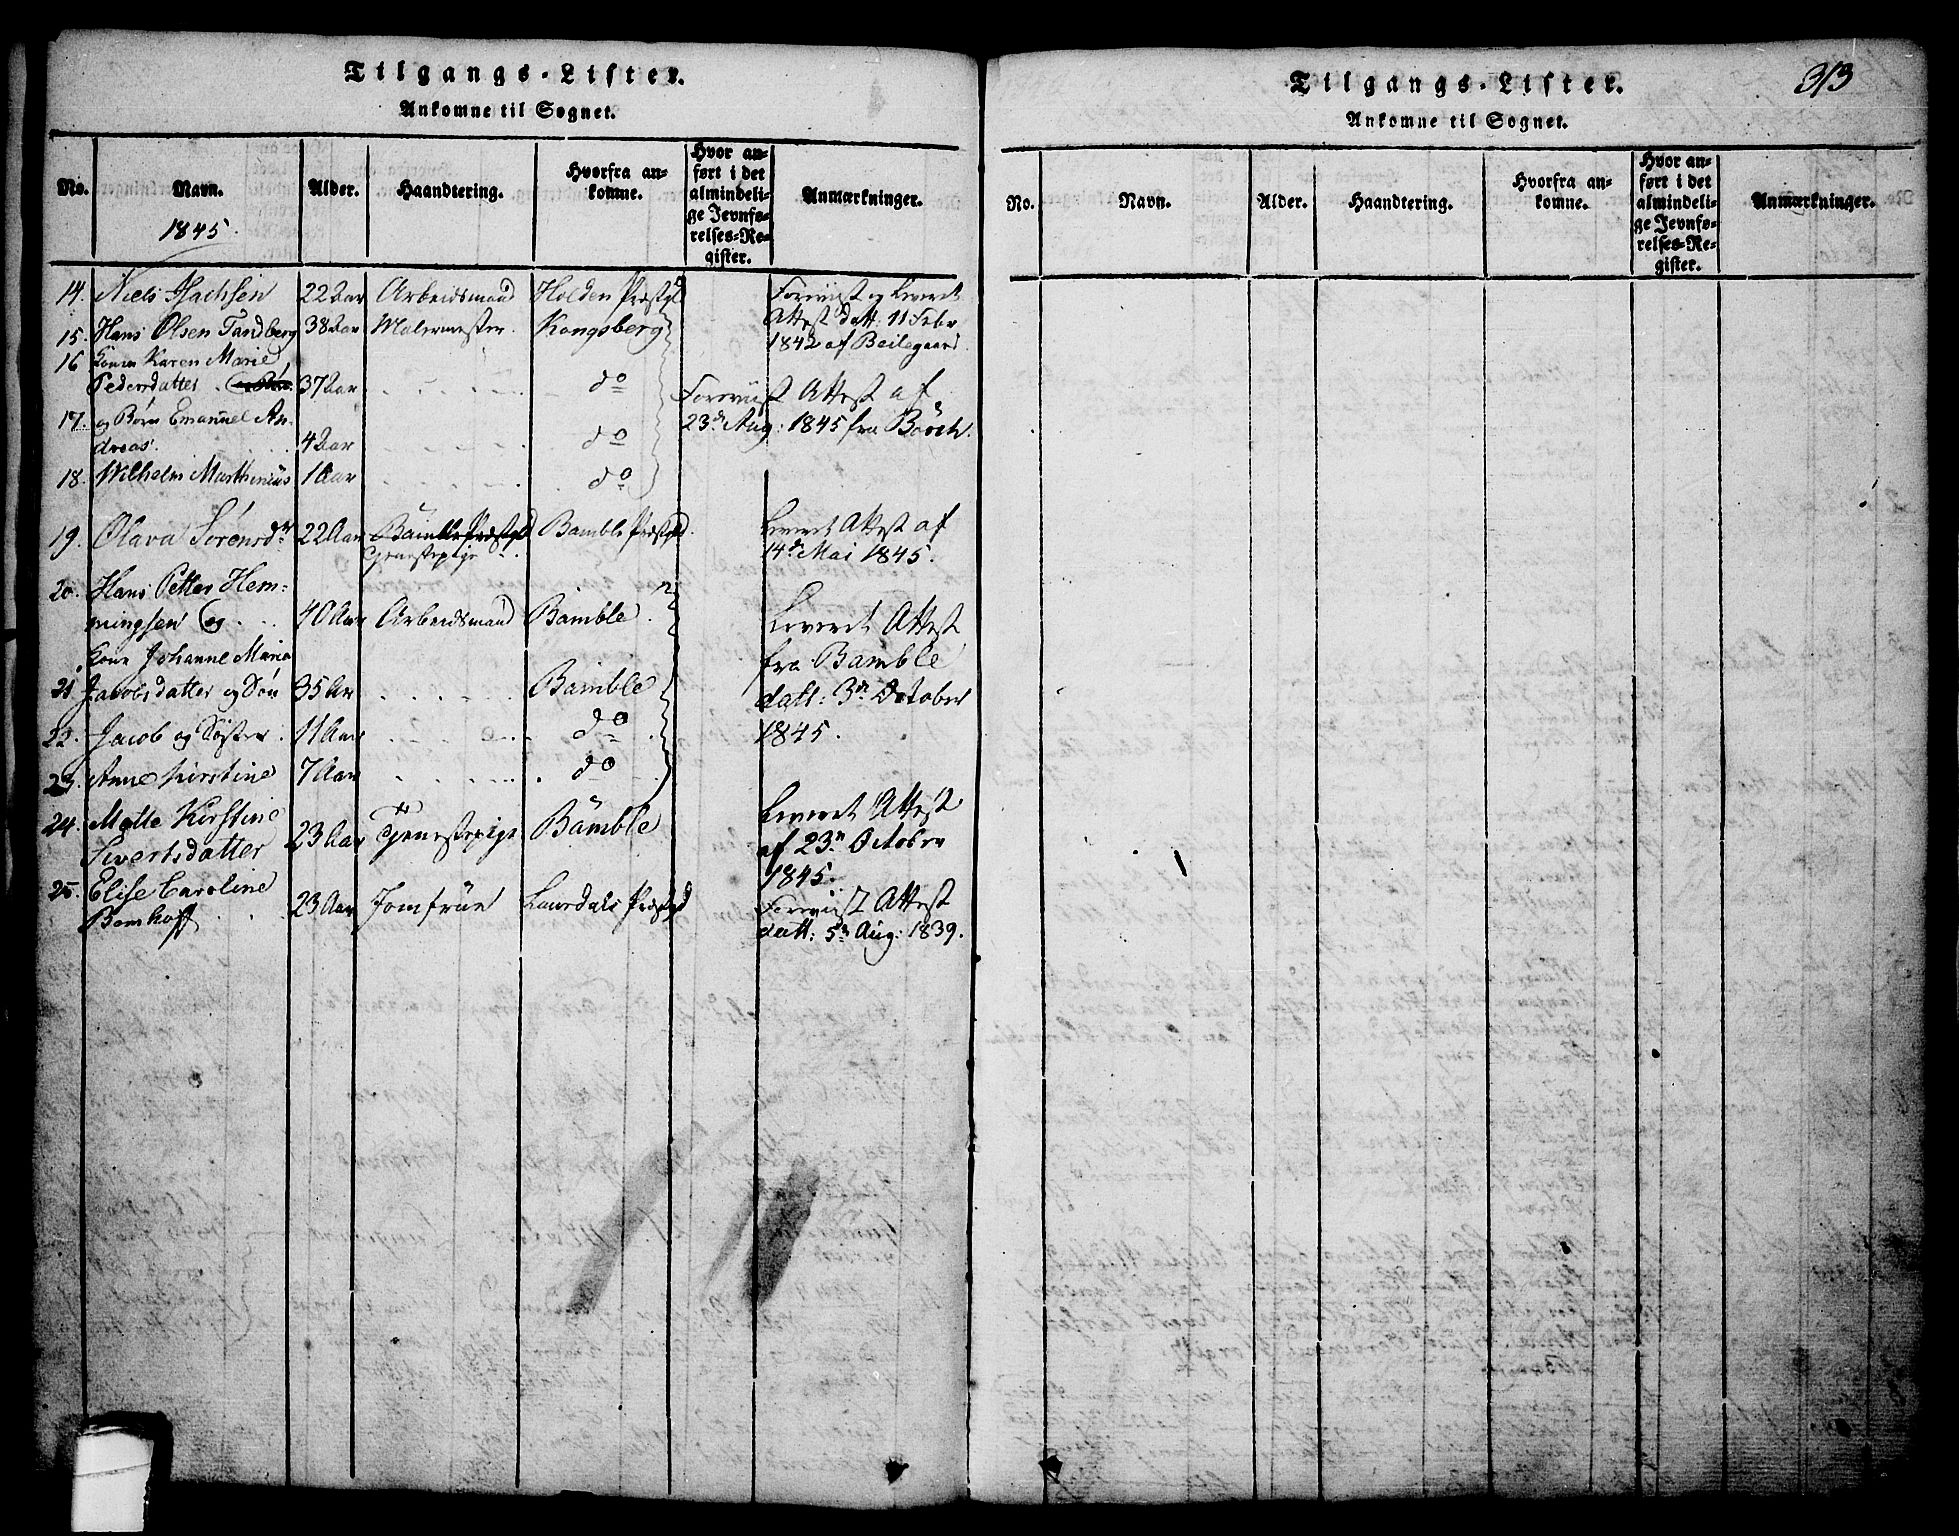 Tilgangs-Lister.
Ankomne til Sognet.
No. Navn. Alder. Haandtering. Hvorfra ankomne. Hvor anført i det almindelige Jevnførelses-Register. Anmærkninger.
1845.
14. Niels Isachsen 22 Aar Arbeidsmand Holden Præstgd Foreviist og leveret
15. Hans Olsen Tandberg 38 Aar Malermester Kongsberg Attest datt: 11 Febr
16 Konen Karen Marie 1842 af Beilegaard
Pedersdatter 37 Aar do Foreviist Attest af
17. og Børn Emanuel An- 23de Aug: 1845 fra Barth.
dreas. 4 Aar do
18. Wilhelm Marthinius 1 Aar do
19. Olava Sørensdr 22 Aar Bamble Præstgd Bamble Præstgd. Leveret Attest af
Tjenestepige 14de Mai 1845.
20. Hans Petter Hem-
mingsen og 40 Aar Arbeidsmand Bamble Leveret Attest
Kone Johanne Maria fra Bamble
21 Jacobsdatter og Søn 35 Ar Bamble datt: 3die October
22. Jacob og Søster 11 Aar do 1845.
23. Anne Kirstine 7 Aar do
24. Mette Kirstine 23 Aar Tjenestepige Bamble Leveret Attest
Sivertsdatter af 23de Octobr
1845.
25. Elise Caroline 23 Aar Jomfrue Laurdals Præstgd Foreviist Attest
Bomhoff datt: 5te Aug: 1839.
Tilgangs-Lister.
313
Ankomne til Sognet.
No. Navn. Alder. Haandtering. Hvorfra ankomne. Hvor anført i det almindelige Jevnførelses-Register. Anmærkninger.